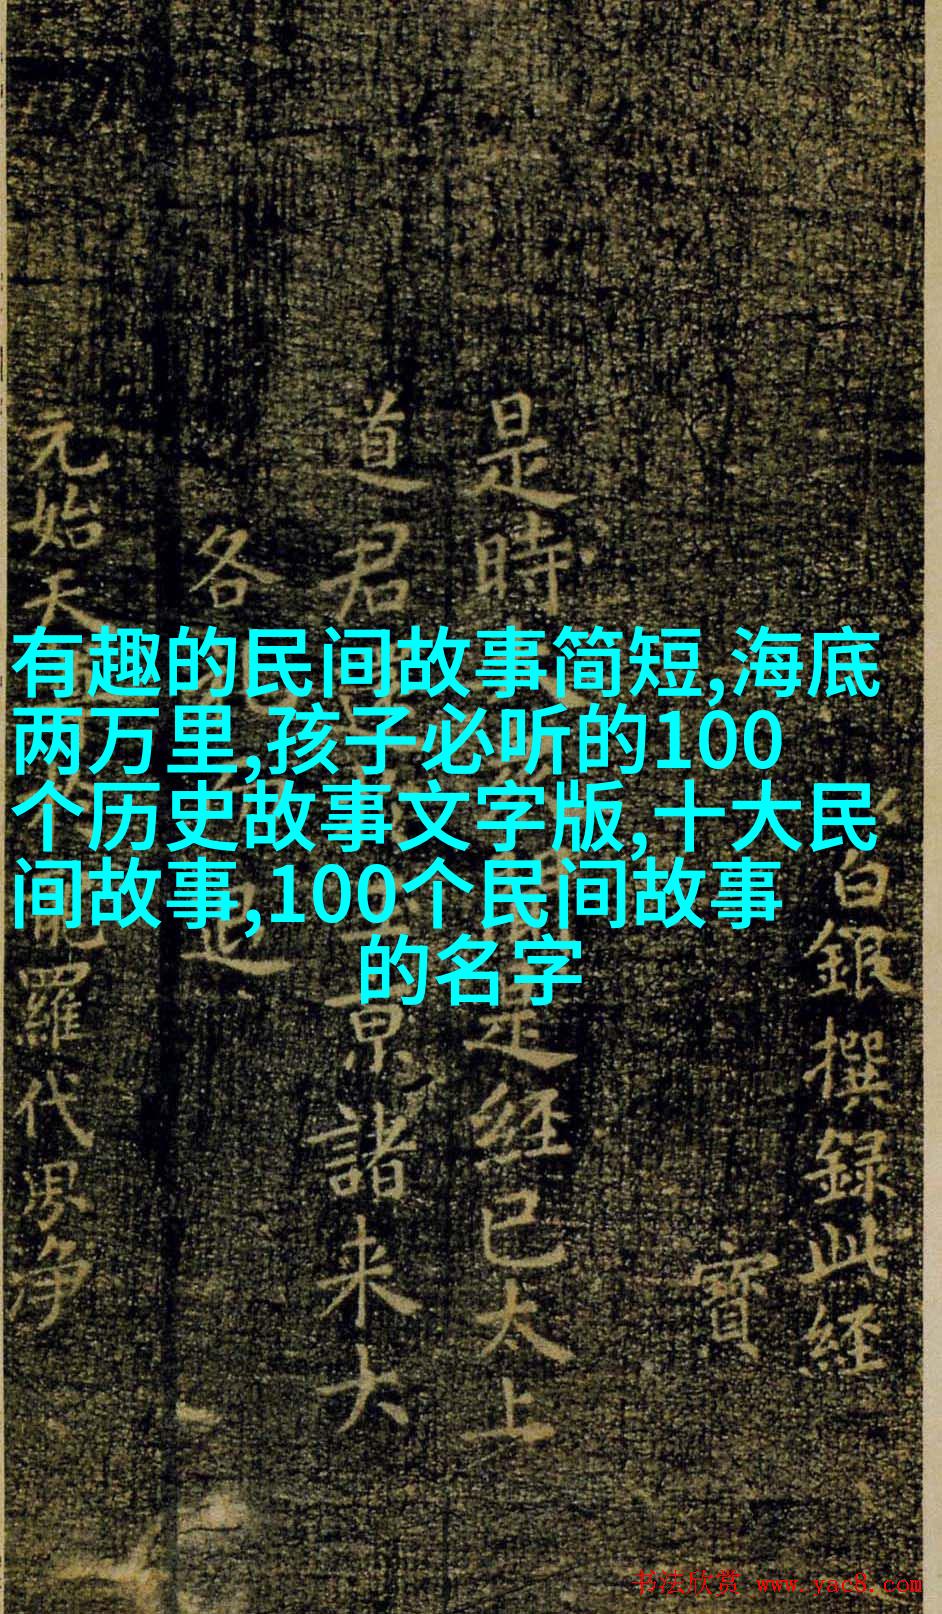 有趣的民间故事简短,海底
两万里,孩子必听的100
个历史故事文字版,十大民
间故事,100个民间故事
的名字
白銀撰録此經
寶
是時
是經已太上
道君
京諸来大
各
元始天
羅代界净
书法欣赏 www.yac8.com